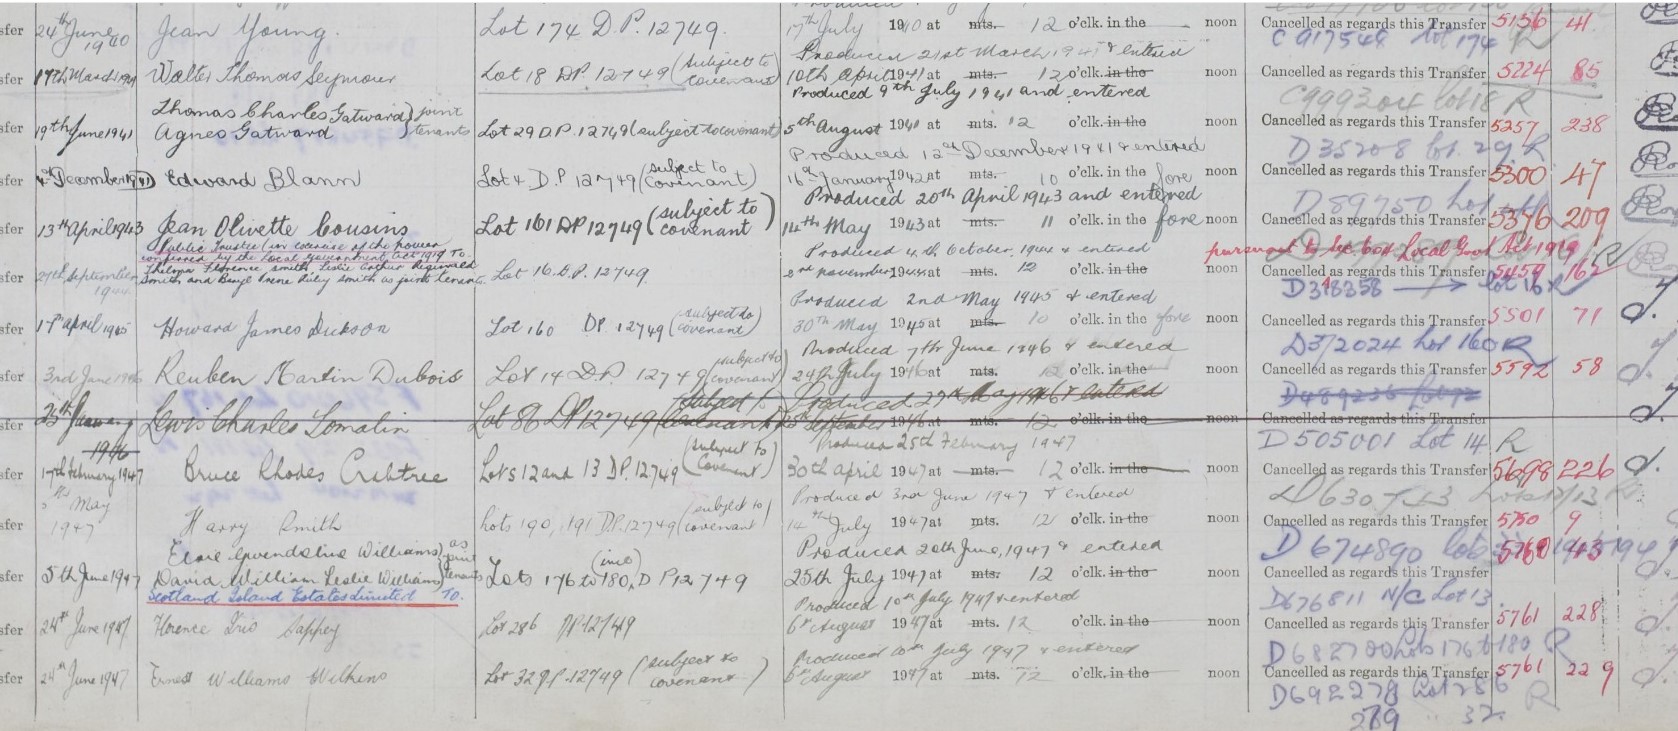 sfer 24th June 1940 Jean Young. Lot 174 D.P. 12749. 17th July 1940 at mts. 12 o'clk. in the noon Cancelled as regards this Transfer 5156 41
C917548 Lot 174 R
Produced 21st March 1941 & entered
sfer 17th March 1941 Walter Thomas Seymour Lot 18 D.P. 12749 (subject to covenant) 10th April 1941 at mts. 12 o'clk. in the noon Cancelled as regards this Transfer 5224 85
C999304 Lot 18 R
Produced 9th July 1941 and entered
Thomas Charles Gatward
sfer 19th June 1941 Agnes Gatward } joint tenants Lot 29 D.P. 12749 (subject to covenant) 5th August 1941 at mts. 12 o'clk. in the noon Cancelled as regards this Transfer 5257 238
D35208 Lot 29 R
Produced 12th December 1941 & entered
sfer 4th December 1941 Edward Blann Lot 4 D.P. 12749 (subject to covenant) 16th January 1942 at mts. 10 o'clk. in the fore noon Cancelled as regards this Transfer 5300 47
D89750
Produced 20th April 1943 and entered
sfer 13th April 1943 Jean Olivette Cousins Lot 161 DP 12749 (subject to covenant) 14th May 1943 at mts. 11 o'clk. in the fore noon Cancelled as regards this Transfer 5376 209
pursuant to Local Govt Act 1919
Public Trustee (in exercise of the power
conferred by the Local Government Act 1919 To.
Produced 4th October, 1944 & entered
Thelma Florence Smith Leslie Arthur Reginald
sfer 27th September 1944 Smith and Beryl Irene Ruby Smith as joint tenants Lot 16 D.P. 12749. 2nd November 1944 at mts. 12 o'clk. in the noon Cancelled as regards this Transfer 5459 162
D318358 Lot 16 R
Produced 2nd May 1945 & entered
sfer 17th April 1945 Howard James Dickson Lot 160 DP. 12749 (subject to covenant) 30th May 1945 at mts. 10 o'clk. in the fore noon Cancelled as regards this Transfer 5501 71
D372024 Lot 160 R
Produced 7th June 1946 & entered
sfer 3rd June 1946 Reuben Martin Dubois Lot 14 D.P. 12749 (subject to covenant) 24th July 1946 at mts. 12 o'clk. in the noon Cancelled as regards this Transfer 5592 58
Produced 27th May 1946 & entered
sfer 25th January 1946 Lewis Charles Tomalin Lot 86 DP 12749 (subject to covenant) September 1946 at mts. 12 o'clk. in the noon Cancelled as regards this Transfer
D505001 Lot 14 R
Produced 25th February 1947
sfer 17th February 1947 Bruce Rhodes Crabtree Lots 12 and 13 D.P. 12749 (subject to covenant) 30th April 1947 at mts. 12 o'clk. in the noon Cancelled as regards this Transfer 5698 226
Produced 3rd June 1947 & entered
sfer May 1947 Harry Smith Lots 190, 191 D.P. 12749 (subject to covenant) 14th July 1947 at mts. 12 o'clk. in the noon Cancelled as regards this Transfer 5750 9
D674890
Produced 20th June, 1947 & entered
Elsie Gwendoline Williams
sfer 5th June 1947 David William Leslie Williams } as joint tenants Lots 176 to 180 (incl) D P 12749 25th July 1947 at mts. 12 o'clk. in the noon Cancelled as regards this Transfer 5760 43
Scotland Island Estates Limited To.
D676811 N/C Lot 13
Produced 10th July 1947 & entered
sfer 24th June 1947 Florence Iris Sappey Lot 286 DP 12749 6th August 1947 at mts. 12 o'clk. in the noon Cancelled as regards this Transfer 5761 228
D682700 Lots 176 to 180 R
Produced 10th July 1947 & entered
sfer 24th June 1947 Ernest Williams Wilkins Lot 32 D.P. 12749 (subject to covenant) 6th August 1947 at mts. 12 o'clk. in the noon Cancelled as regards this Transfer 5761 229
D692278 Lot 286 R
279 " 32.